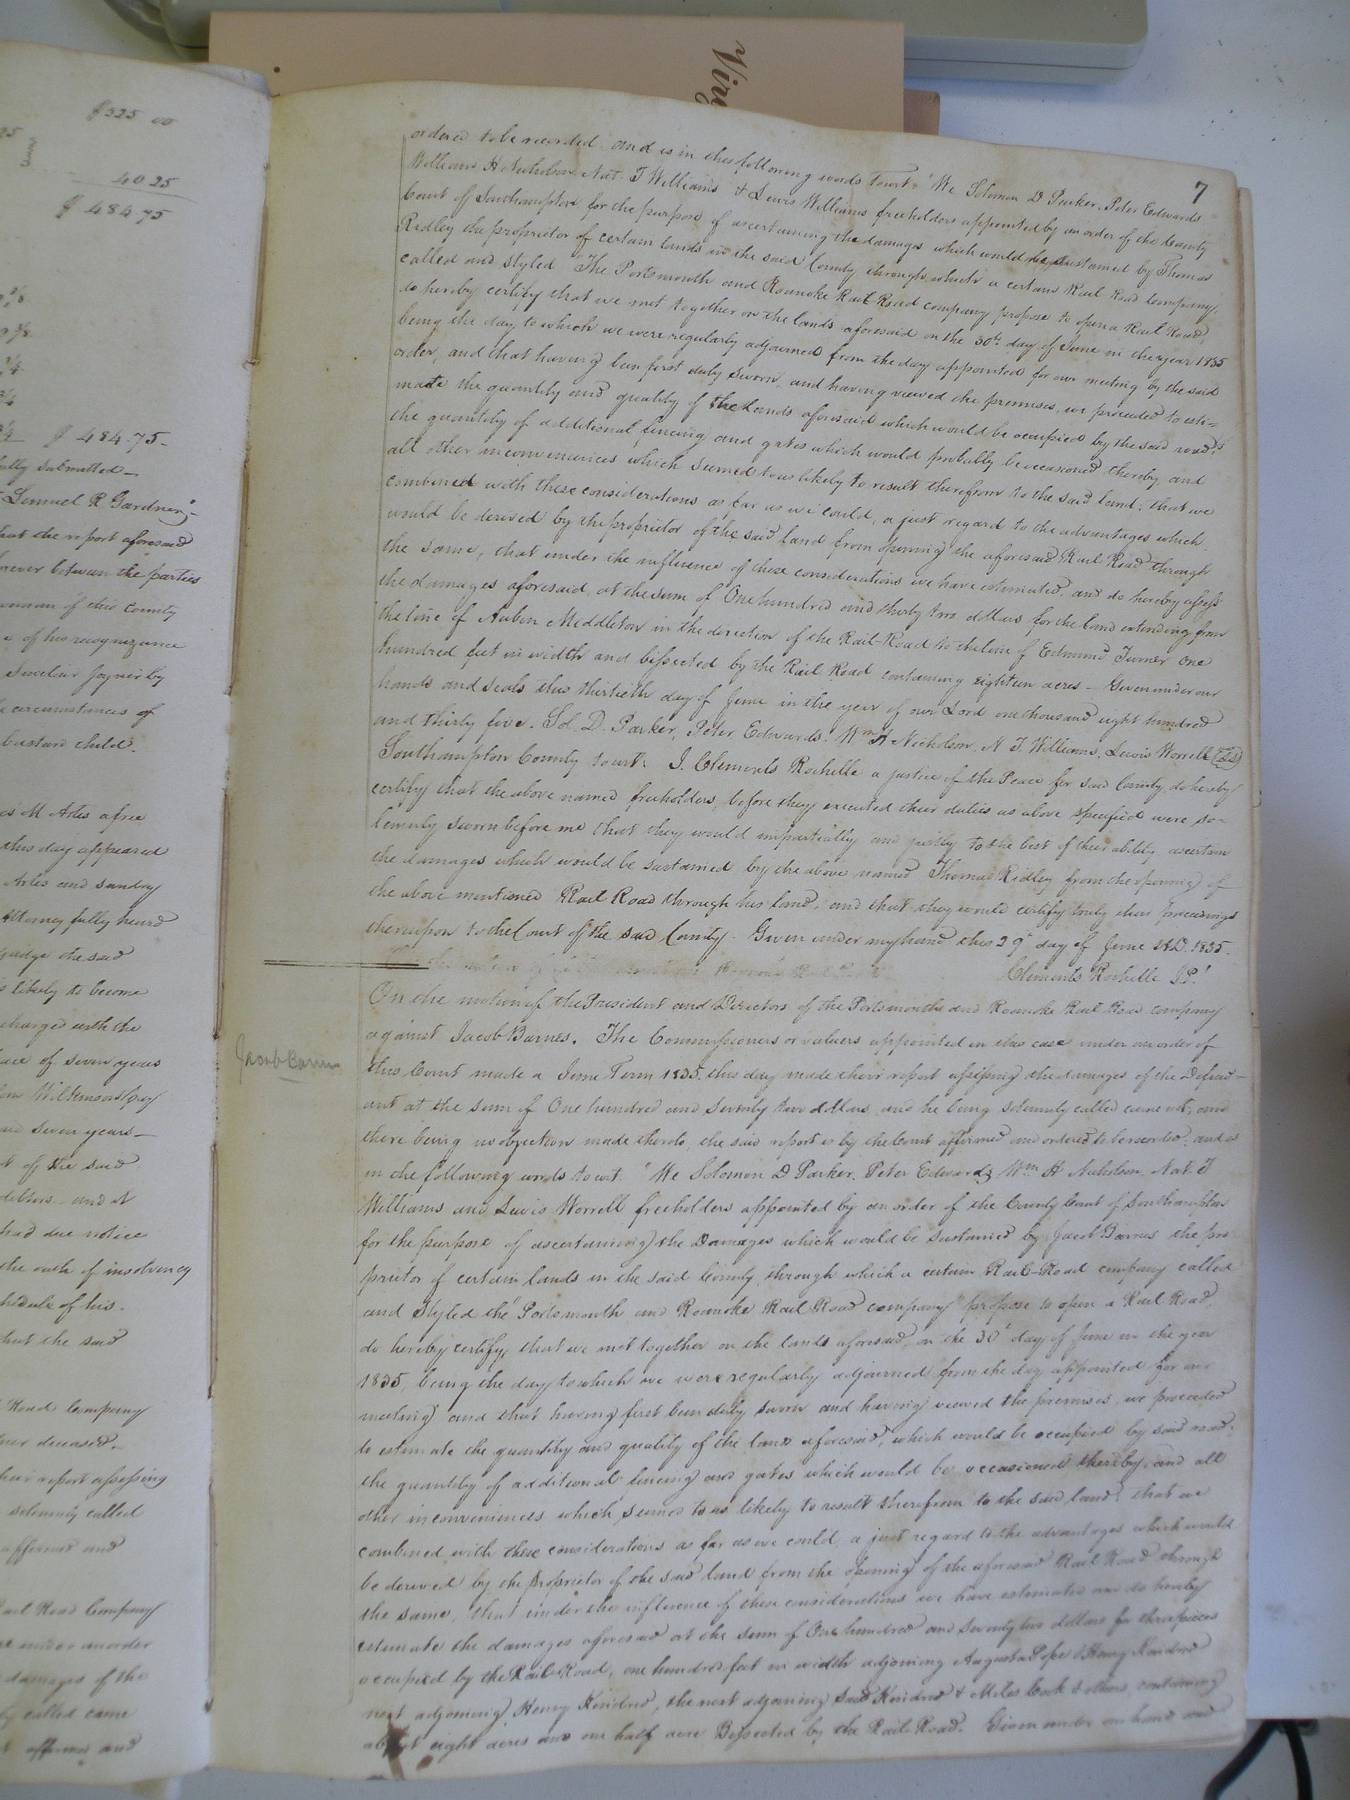 Virg
$325 00
40 25
$ 484 75
$ 484.75
fully submitted
Lemuel R Gardner
that the report aforesaid
between the parties
woman of this county
of his recognizance
Joyner by
circumstances of
bastard child.
M Artes a free
this day appeared
Artes and sundry
Attorney fully heard
the said
likely to become
charged with the
of seven years
seven years
of the said
debtors and it
had due notice
the oath of insolvency
schedule of his
that the said
Road Company
deceased.
their report assessing
solemnly called
affirmed and
Rail Road Company
under an order
damages of the
called came
affirmed and
7
ordered to be recorded and is in the following words towit: "We Solomon D Parker, Peter Edwards
William H Nicholson Nat. T Williams & Lewis Williams freeholders appointed by an order of the County
Court of Southampton for the purpose of ascertaining the damages which would be sustained by Thomas
Ridley the proprietor of certain lands in the said County through which a certain Rail Road Company,
called and styled "The Portsmouth and Roanoke Rail Road company propose to open a Rail Road,
do hereby certify that we met together on the lands aforesaid on the 30th day of June in the year 1835
being the day to which we were regularly adjourned from the day appointed for our meeting by the said
order, and that having been first duly sworn, and having viewed the premises, we proceeded to esti=
mate the quantity and quality of the lands aforesaid which would be occupied by the said road,
the quantity of additional fencing and gates which would probably be occasioned thereby and
all other inconveniences which seemed to us likely to result therefrom to the said land; that we
combined with these considerations as far as we could, a just regard to the advantages which
would be derived by the proprietor of the said land from opening the aforesaid Rail Road through
the same, that under the influence of these considerations we have estimated, and do hereby assess
the damages aforesaid, at the sum of One hundred and thirty two dollars for the land extending from
the line of Auben Middleton in the direction of the Rail-Road to the line of Edmund Turner one
hundred feet in width and bissected by the Rail Road containing eighteen acres – Given under our
hands and seals this thirtieth day of June in the year of our Lord one thousand eight hundred
and thirty five. Sol. D. Parker, Peter Edwards. Wm H Nicholson, N. T. Williams, Lewis Worrell
Southampton County towit: I. Clements Rochelle a justice of the Peace for said County, do hereby
certify that the above named freeholders, before they executed their duties as above specified were so-
lemnly sworn before me that they would impartially and justly to the best of their ability ascertain
the damages which would be sustained by the above named Thomas Ridley from the opening of
the above mentioned Rail Road through his land, and that they would certify truly their proceedings
thereupon to the Court of the said County. Given under my hand this 29 day of June A.D. 1835.
Clements Rochelle J.P.
On the motion of the President and Directors of the Portsmouth and Roanoke Rail Road company
against Jacob Barnes. The Commissioners or valuers appointed in this case under an order of
Jacob Barnes
this Court made a June Term 1835, this day made their report assessing the damages of the Defend-
ant at the sum of One hundred and seventy two dollars and he being solemnly called came not, and
there being no objection made thereto, the said report is by the Court affirmed and ordered to be recorded, and is
in the following words to wit. "We Solomon D Parker, Peter Edwards Wm H Nicholson, Nat. T
Williams and Lewis Worrell freeholders appointed by an order of the County Court of Southampton
for the purpose of ascertaining the Damages which would be sustained by Jacob Barnes the pro
prietor of certain lands in the said County, through which a certain Rail-Road company called
and styled the "Portsmouth and Roanoke Rail Road company" propose to open a Rail Road,
do hereby certify, that we met together on the lands aforesaid, on the 30 day of June in the year
1835, being the day to which we were regularly adjourned from the day appointed for our
meeting and that having first been duly sworn and having viewed the premises, we proceeded
to estimate the quantity and quality of the land aforesaid, which would be occupied by said road;
the quantity of additional fencing and gates which would be occasioned thereby, and all
other inconveniences which seemed to us likely to result therefrom to the said land; that we
combined with these considerations as far as we could, a just regard to the advantages which would
be derived by the proprietor of the said land from the opening of the aforesaid Rail Road through
the same, that under the influence of these considerations we have estimated and do hereby
estimate the damages aforesaid at the sum of One hundred and seventy two dollars for three pieces
occupied by the Rail-Road, one hundred feet in width adjoining Augusta Pope & Henry Kindred
next adjoining Henry Kindred, the next adjoining said Kindred & Miles Cook & others, containing
about eight acres and one half acre Bissected by the Rail-Road. Given under our hand and